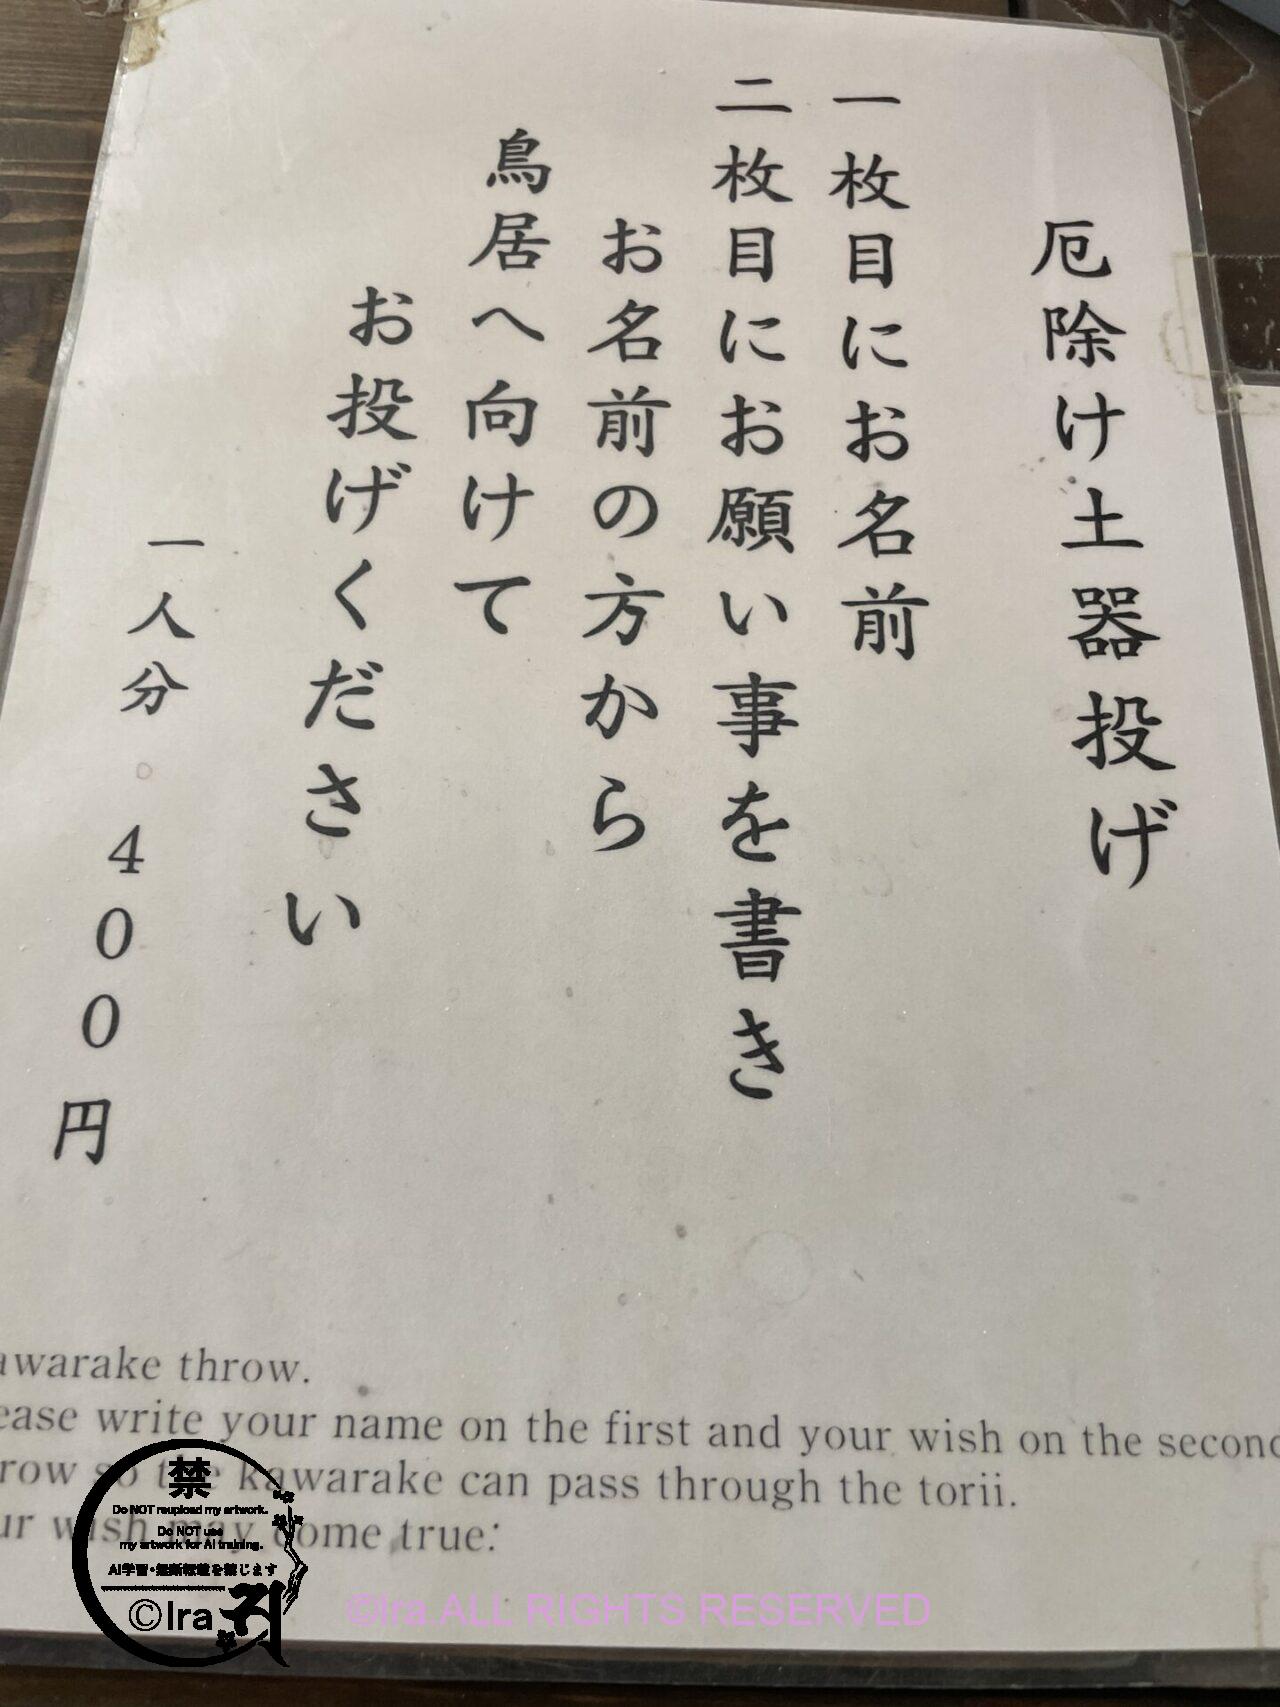 厄除け土器投げ
一枚目にお名前
二枚目にお願い事を書き
お名前の方から
鳥居へ向けて
お投げください
一人分 400円
awarake throw.
ease write your name on the first and your wish on the second
row so the kawarake can pass through the torii.
ur wish may come true:
禁
Do NOT reupload my artwork.
Do NOT use
my artwork for AI training.
AI学習・無断転載を禁じます
©Ira
©Ira.ALL RIGHTS RESERVED